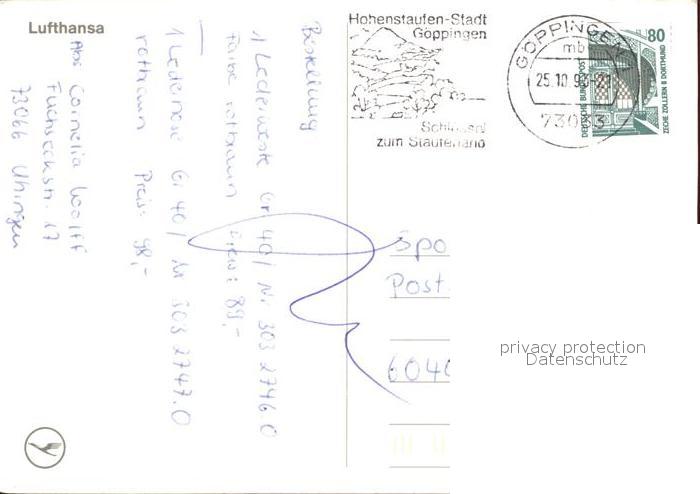 Lufthansa
Bestellung
1 Lederweste Gr 40 / Nr 303 2746.0
Farbe rotbraun Preis: 89,-
1 Lederhose Gr 40 / Nr 303 2747.0
rotbraun Preis: 98,-
Abs Cornelia Wolff
Fuchseckstr. 17
73066 Uhingen
Hohenstaufen-Stadt
Göppingen
Schlüssel
zum Stauferland
GÖPPINGEN
mb
25.10.93
73033
80
DEUTSCHE BUNDESPOST
ZECHE ZOLLERN II DORTMUND
Spo
Post
6040
privacy protection
Datenschutz